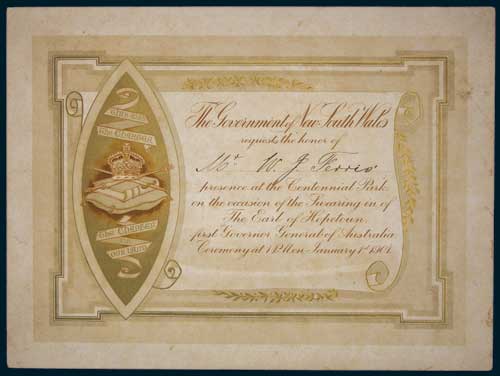 The Government of New South Wales
requests the honor of
Mr. W. J. Ferris
presence at the Centennial Park
on the occasion of the Swearing in of
The Earl of Hopetoun
first Governor General of Australia
Ceremony at 1 P.M. on January 1st 1901.